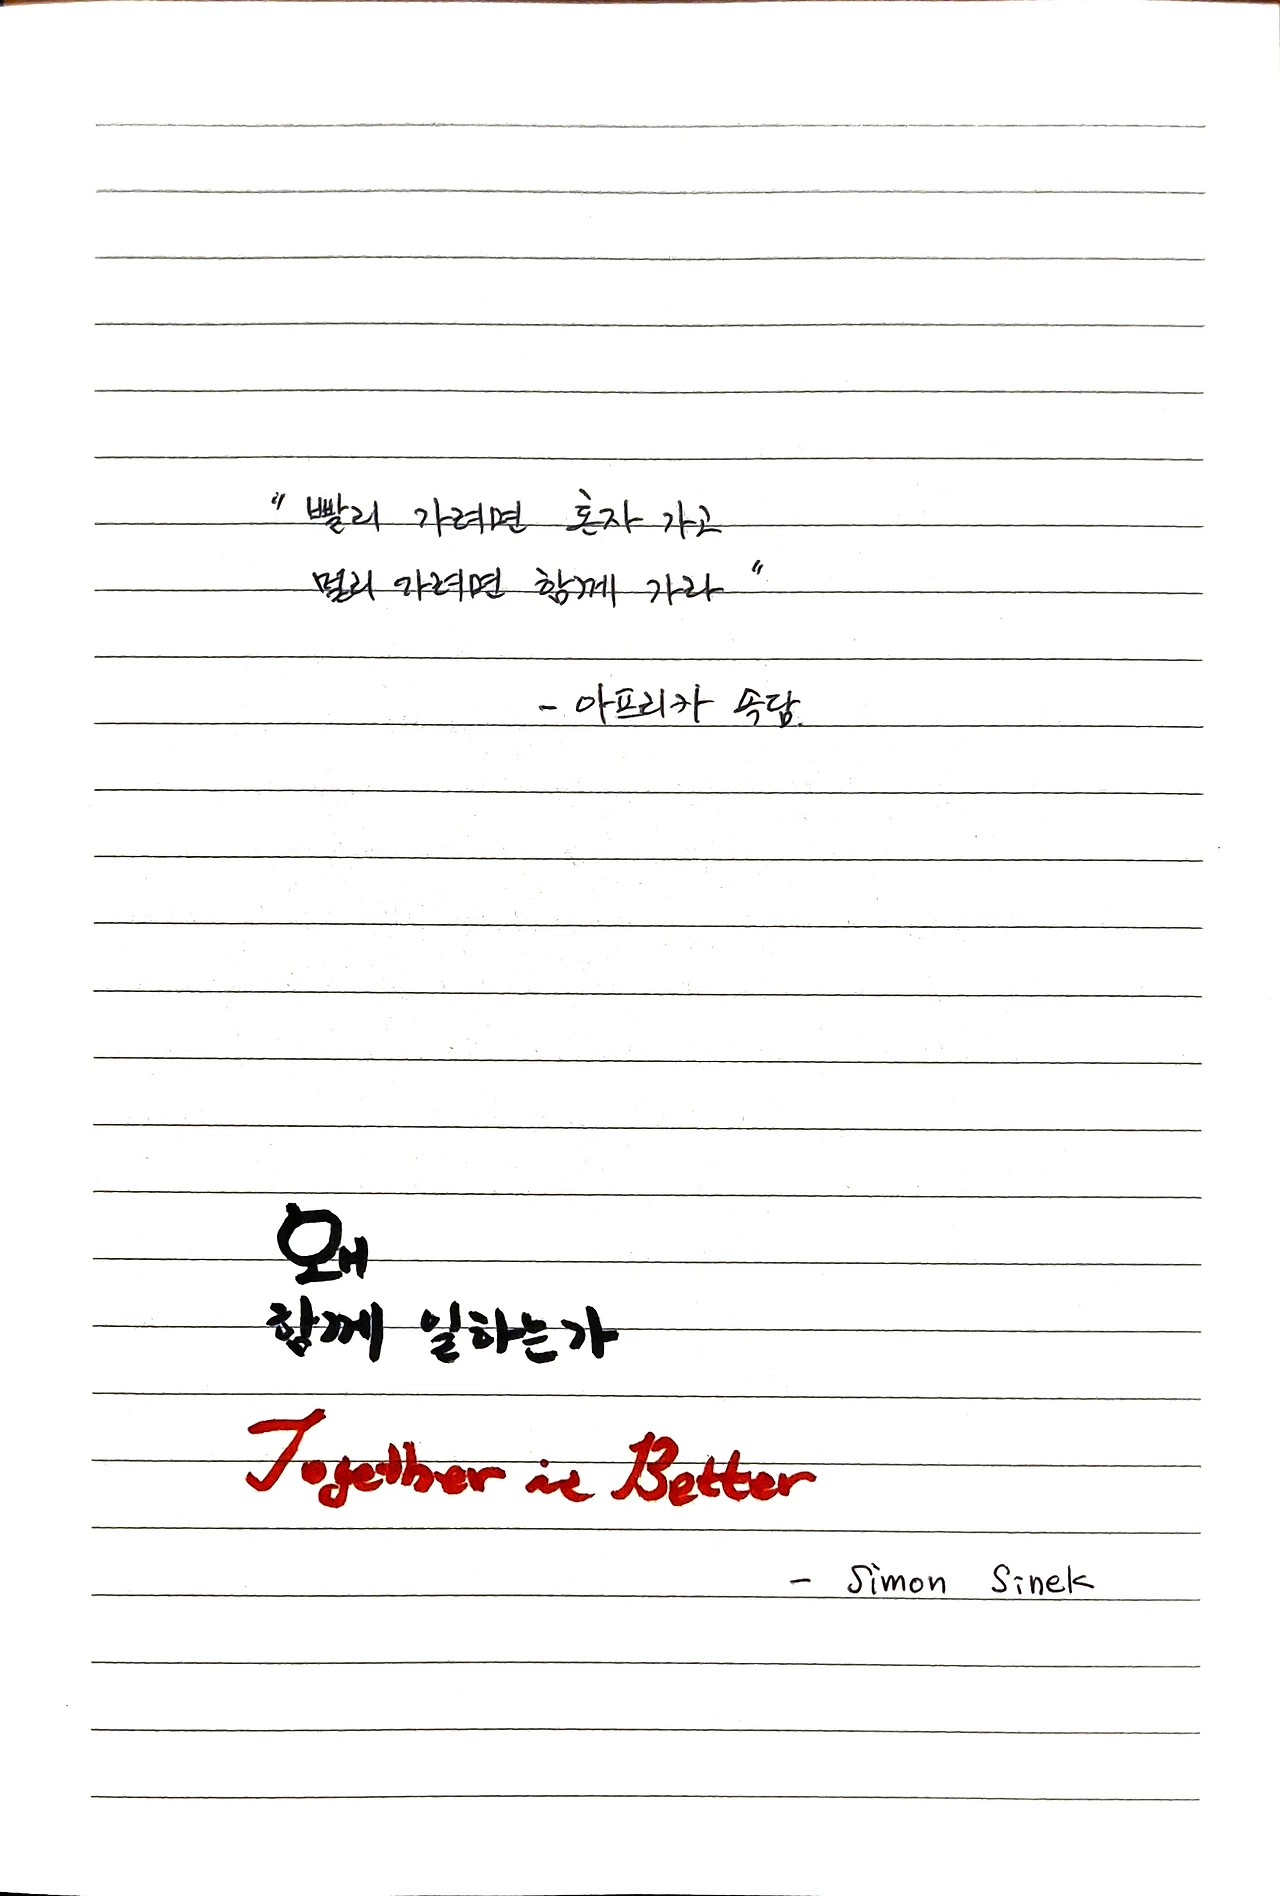 " 빨리 가려면 혼자 가고
멀리 가려면 함께 가라 "
- 아프리카 속담.
왜
함께 일하는가
Together is Better
- Simon Sinek